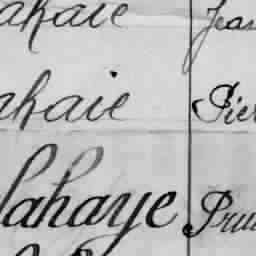 ahaie Jea
ahaie Pier
lahaye Pru